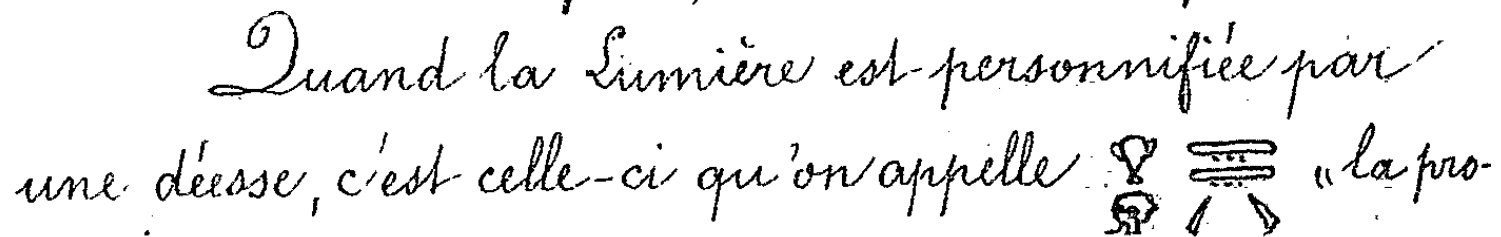 Quand la Lumière est personnifiée par
une déesse, c'est celle-ci qu'on appelle „la pro-